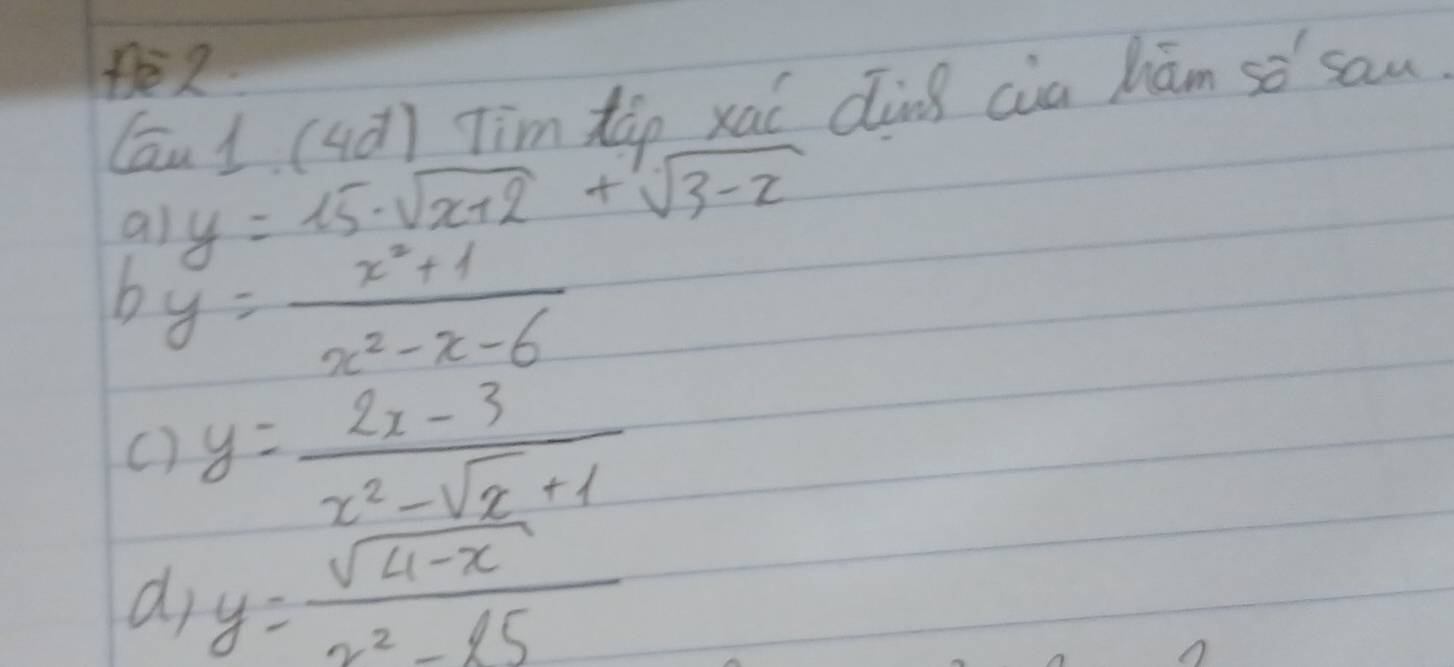 Đề 2.
Câu 1. (4đ) Tìm tập xác định của hàm số sau.
a) y = 15.√(x+2) + √(3-x)
b y = (x²+1)/(x²-x-6)
c) y = (2x-3)/(x²-√x+1)
d) y = √(4-x)/(x²-25)